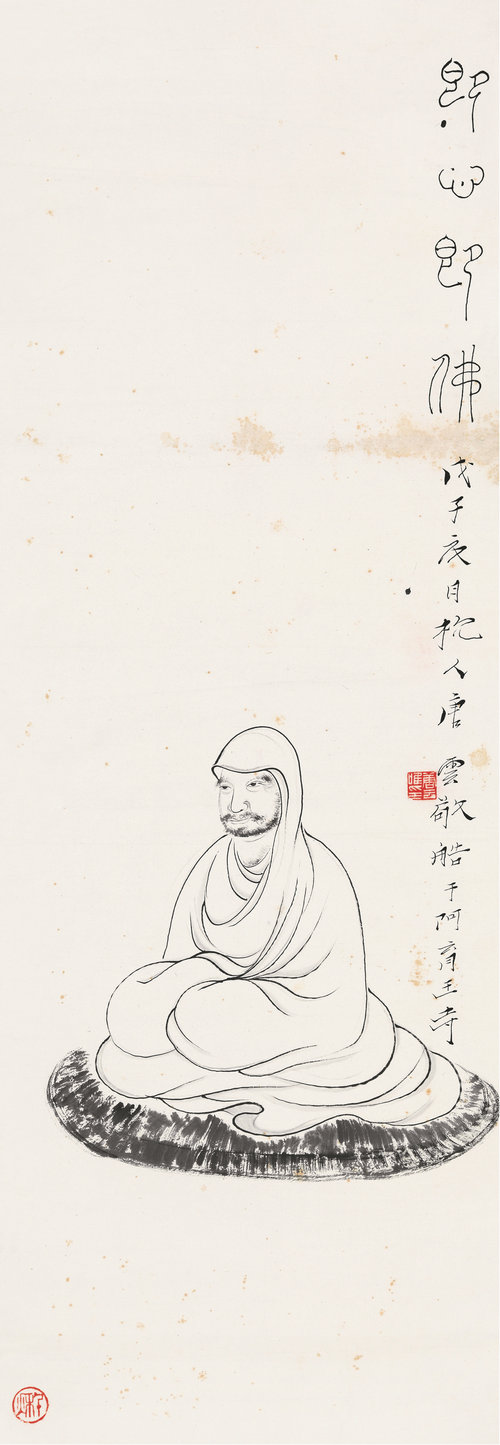 即心即佛
戊子辰月杭人唐雲敬艁于阿育王寺